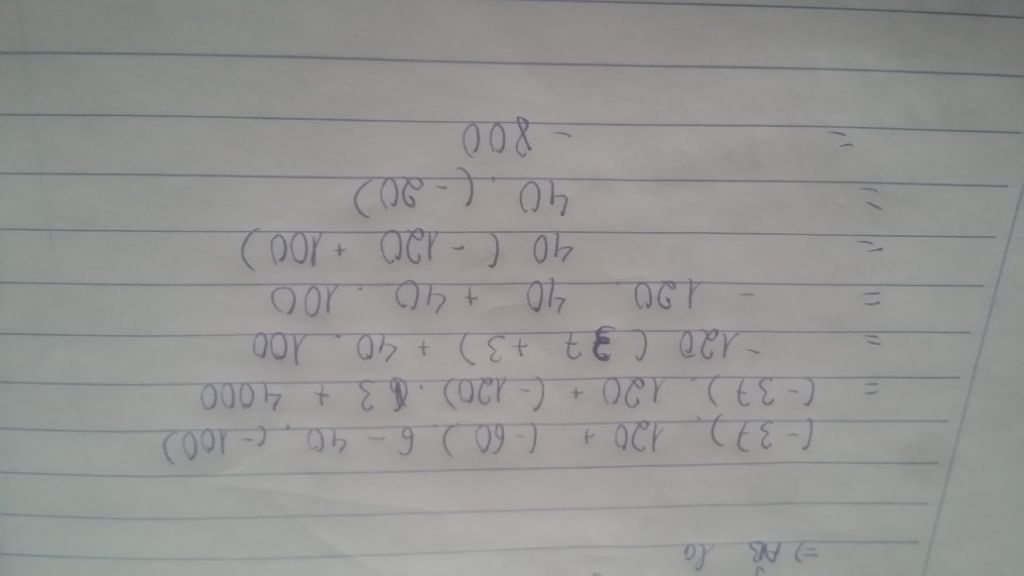 => AB là
(-37). 120 + (-60). 6 - 40. (-100)
= (-37). 120 + (-120). 3 + 4000
= -120 ( 37 + 3) + 40. 100
= - 120. 40 + 40. 100
= 40 ( - 120 + 100)
= 40. ( - 20)
= - 800